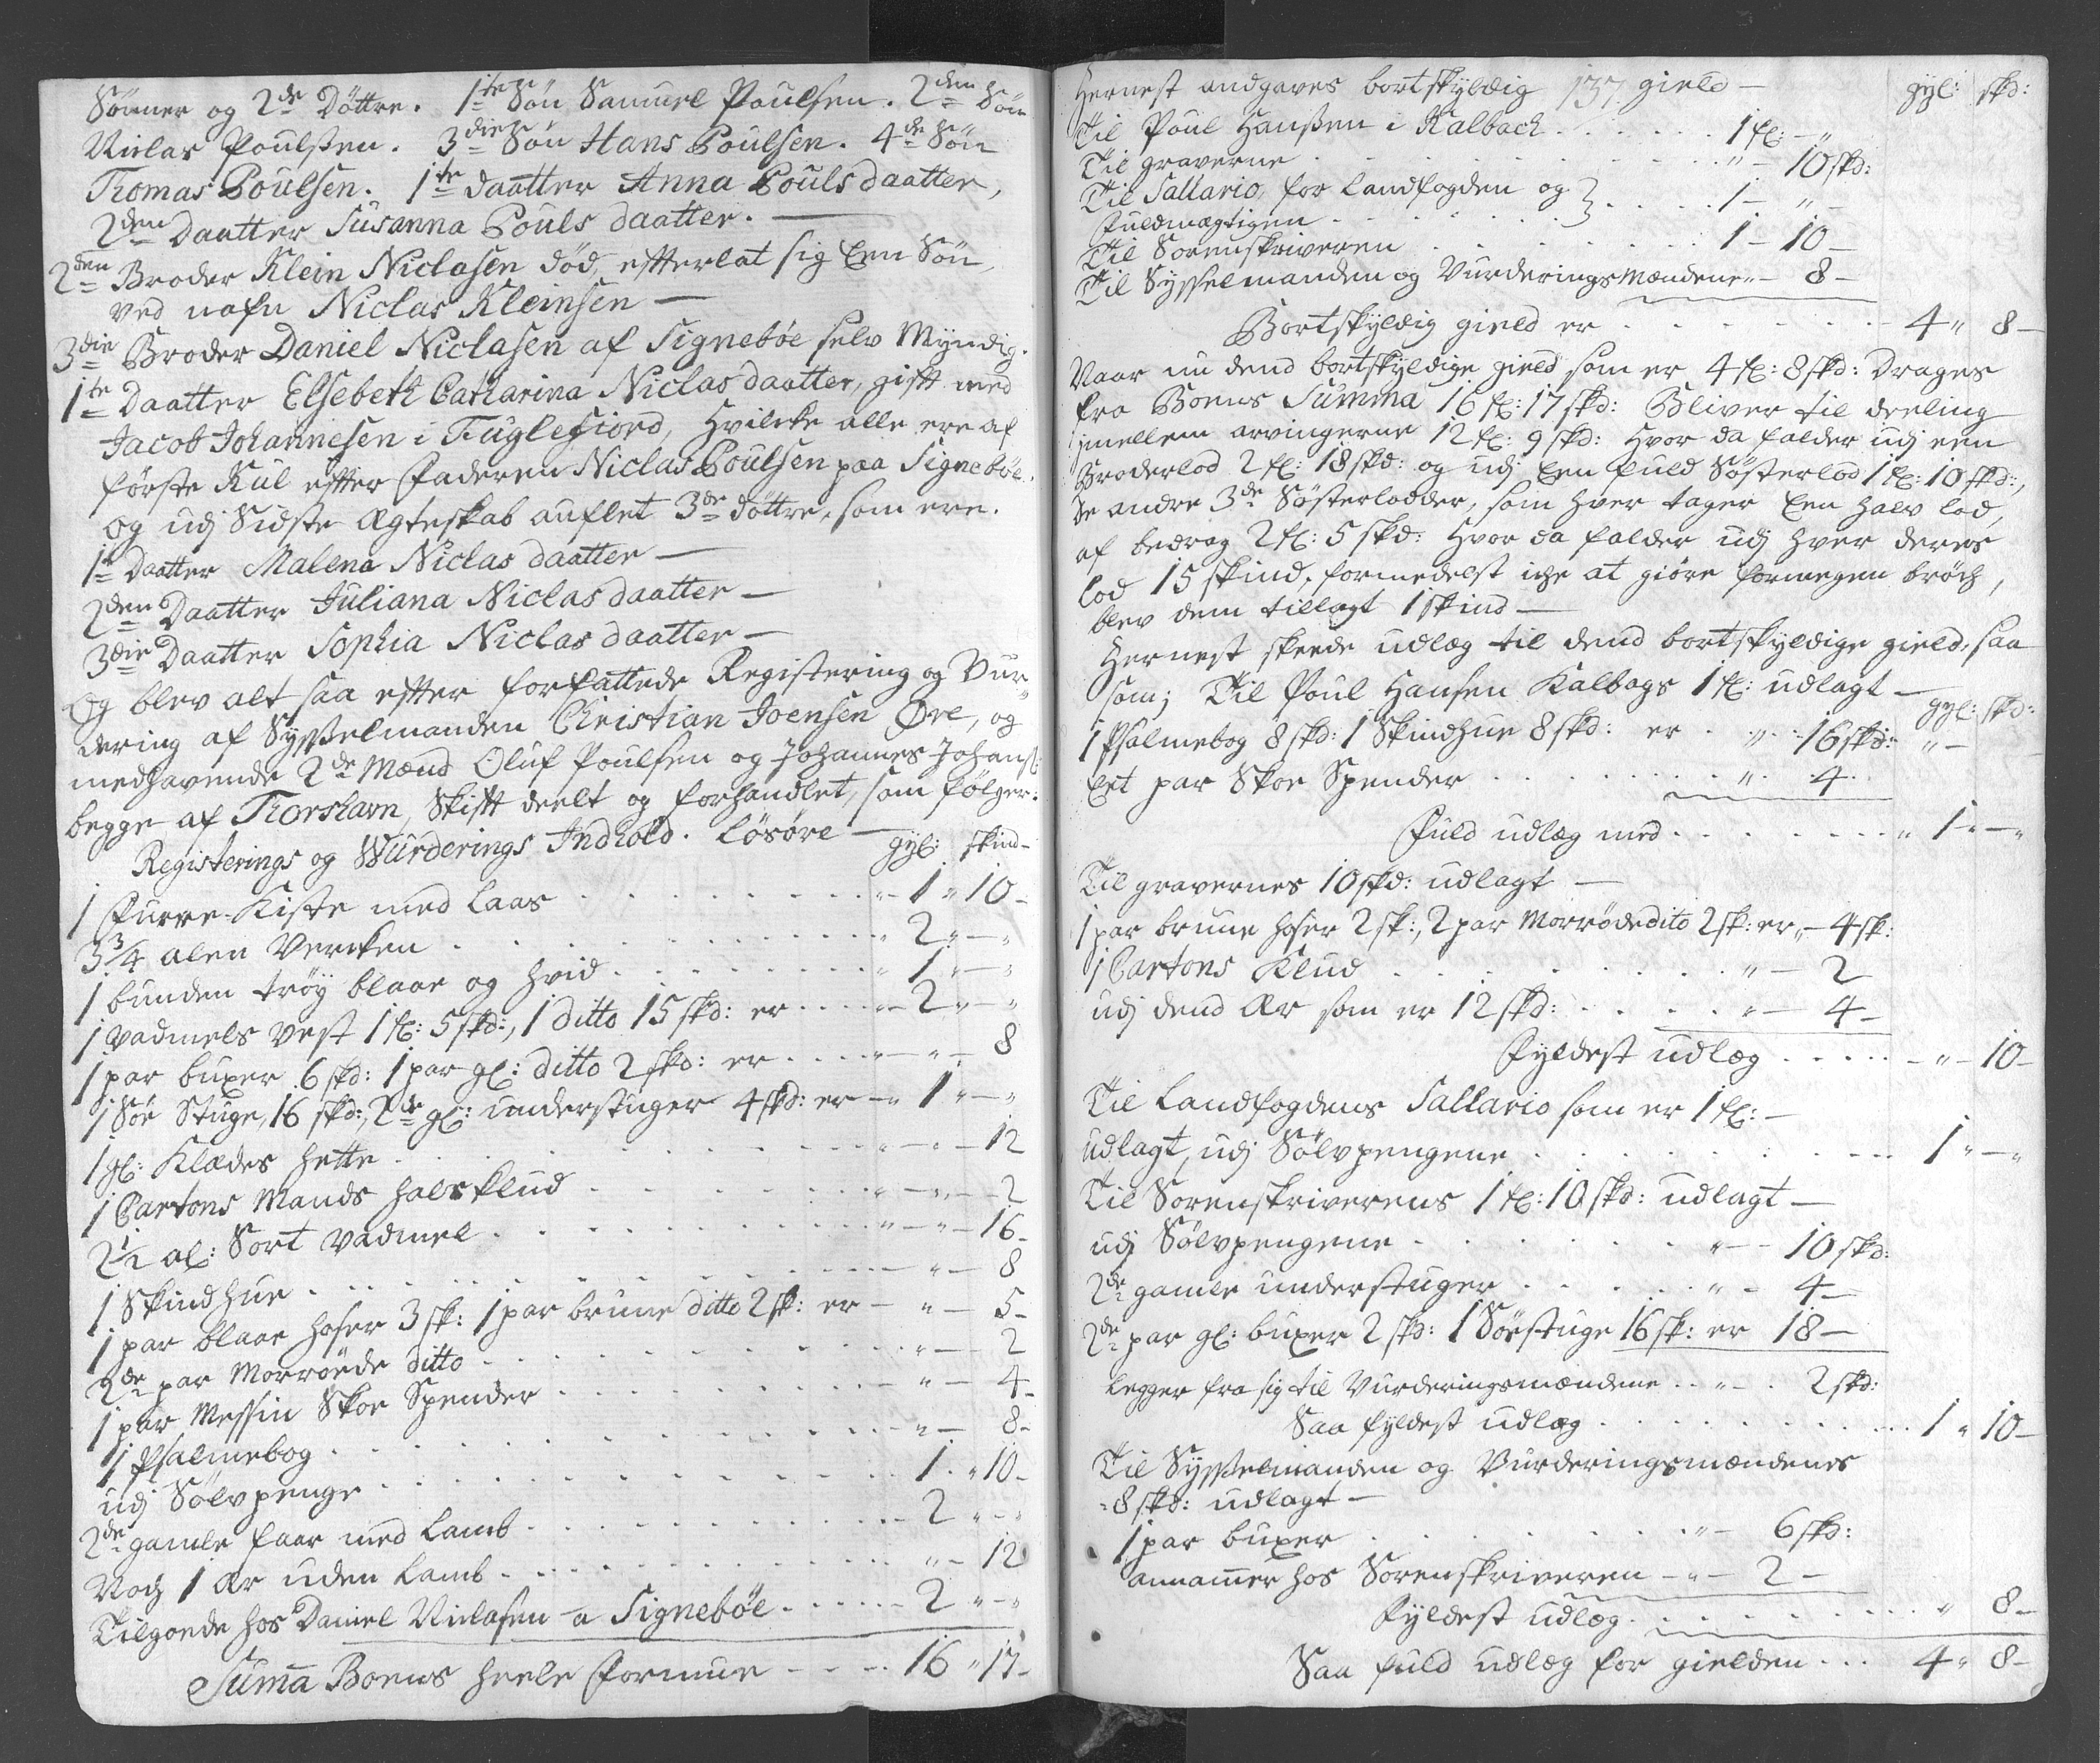 Sönner og 2de Döttre. 1te Sön Samuel Poulsen. 2den Sön
Niclas Poulsen. 3die Sön Hans Poulsen. 4de Sön
Thomas Poulsen. 1te daatter Anna Pouls daatter,
2den Daatter Susanna Pouls daatter. —
2den Broder Klein Niclasen död, effterlat sig Een Sön,
ved nafn Niclas Kleinsen —
3die Broder Daniel Niclasen af Signebøe selv Myndig.
1te Daatter Elsebeth Catharina Niclas daatter, gifft med
Jacob Johannesen i Fuglefiord, Hvilcke alle ere af
förste Kul effter Faderen Niclas Poulsen paa Signebøe.
og udj Sidste Ægteskab auflet 3de döttre, som ere.
1te Daatter Malena Niclas daatter —
2den Daatter Juliana Niclas daatter —
3die Daatter Sophia Niclas daatter —
Og blev alt saa effter forfattede Registering og Vur-
dering af Sysselmanden Christian Joensen Øre, og
medhavende 2de Mænd Oluf Poulsen og Johannes Johans:
begge af Thorshavn, Skifft deelt og forhandlet, som fölger:
Registerings og Wurderings Indhold. Lösøre — gyl: skind—
1 Furre-Kiste med Laas . . . 1 " 10 —
3 3/4 alen Vercken . . . 2 " — "
1 bunden tröy blaae og hvid . . . 1 " — "
1 vadmels vest 1 fl: 5 skd:, 1 ditto 15 skd: er . . . 2 " — "
1 par buxer 6 skd: 1 par gl: ditto 2 skd: er . . . " — 8
1 Söe Stuge, 16 skd:, 2de gl: understuger 4 skd: er — " 1 " — "
1 gl: Klædes hette . . . " — 12
1 Cartons Mands halsklud . . . " — 2
2 1/2 al: Sort vadmel . . . " — 16 —
1 Skindhue . . . " — 8
1 par blaae hoser 3 sk: 1 par brune ditto 2 sk: er — " — 5 —
2de par Morröede ditto . . . " — 2
1 par Messin Skoe Spender . . . " — 4 —
1 Psalmebog . . . " — 8 —
udj Sölvpenge . . . 1 " 10 —
2de gamle faar med Lamb . . . 2 " — "
Noch 1 Ær uden Lamb . . . " — 12
Tilgode hos Daniel Niclasen a Signebøe . . . 2 " — "
Suma Boens heele Formue . . . 16 " 17 —
Hernest andgaves bortskyldig 137. gield — gyl: skd:
Til Poul Hanssen i Kalback . . . 1 fl: — "
Til graverne . . . " — 10 skd:
Til Sallario, for Landfogden og
Fuldmægtigen . . . } . . . 1 — " —
Til Sorenskriveren . . . 1 — 10 —
Til Sysselmanden og Vurderings Mændene " — 8 —
Bortskyldig gield er . . . 4 " 8 —
Naar nu dend bortskyldige gield som er 4 fl: 8 skd: Drages
fra Boens Summa 16 fl: 17 skd: Bliver til deeling
jmellem arvingerne 12 fl: 9 skd: Hvor da falder udj een
Broderlod 2 fl: 18 skd: og udj Een fuld Sösterlod 1 fl: 10 skd:,
De andre 3de Sösterlodder, som hver tager Een halv lod,
af bedrag 2 fl: 5 skd: Hvor da falder udj hver deres
Lod 15 skind. formedelst iche at giöre formegen bröch,
blev dem tillagt 1 skind —
Hernest skeede udlæg til dend bortskyldige gield, saa
som; Til Poul Hansen Kalbags 1 fl: udlagt — gyl: skd:
1 Psalmebog 8 skd: 1 Skindhue 8 skd: er . . . " . 16 skd: " —
Eet par Skoe Spender . . . " . 4 .
Fuld udlæg med . . . " 1 " — "
Til gravernes 10 skd: udlagt —
1 par brune hoser 2 sk:, 2 par Morröde dito 2 sk: er, — 4 sk:
1 Cartons Klud . . . " — 2
udj dend Ær som er 12 skd: . . . " — 4 —
Fyldest udlæg . . . — " — 10 —
Til Landfogdens Sallario som er 1 fl: —
udlagt, udj Sölvpengene . . . 1 " — "
Til Sorenskriverens 1 fl: 10 skd: udlagt —
udj Sölvpengene . . . " — 10 skd:
2de gamle understuger . . . " — 4 —
2de par gl: buxer 2 skd: 1 Söestuge 16 sk: er 18 —
Legger fra sig til Vurderingsmændene . . " — . 2 skd:
Saa fyldest udlæg . . . 1 " 10 —
Til Sysselmanden og Vurderingsmændenes
8 skd: udlagt —
1 par buxer . . . " — 6 skd:
annamer hos Sorenskriveren — " — 2 —
Fyldest udlæg . . . " 8 —
Saa fuld udlæg for gielden . . . 4 " 8 —